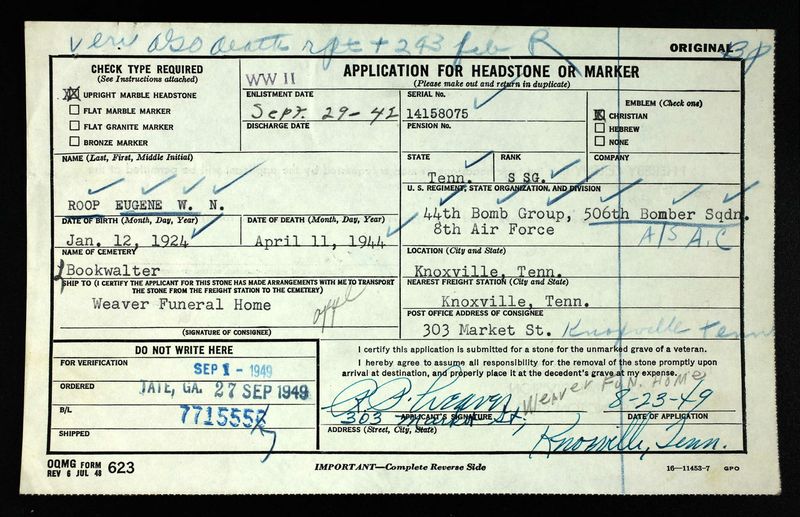 veri also death rpt + 293 feb R
ORIGINAL
CHECK TYPE REQUIRED
(See Instructions attached)
UPRIGHT MARBLE HEADSTONE
FLAT MARBLE MARKER
FLAT GRANITE MARKER
BRONZE MARKER
WW II
APPLICATION FOR HEADSTONE OR MARKER
(Please make out and return in duplicate)
ENLISTMENT DATE
Sept. 29-42
DISCHARGE DATE
SERIAL No.
14158075
PENSION No.
EMBLEM (Check one)
CHRISTIAN
HEBREW
NONE
NAME (Last, First, Middle Initial)
ROOP EUGENE W. N.
STATE
Tenn.
RANK
S SG.
COMPANY
U. S. REGIMENT, STATE ORGANIZATION, AND DIVISION
44th Bomb Group, 506th Bomber Sqdn.
8th Air Force
A/S A.C
DATE OF BIRTH (Month, Day, Year)
Jan. 12, 1924
DATE OF DEATH (Month, Day, Year)
April 11, 1944
NAME OF CEMETERY
Bookwalter
LOCATION (City and State)
Knoxville, Tenn.
SHIP TO (I CERTIFY THE APPLICANT FOR THIS STONE HAS MADE ARRANGEMENTS WITH ME TO TRANSPORT
THE STONE FROM THE FREIGHT STATION TO THE CEMETERY)
Weaver Funeral Home
appl
(SIGNATURE OF CONSIGNEE)
NEAREST FREIGHT STATION (City and State)
Knoxville, Tenn.
POST OFFICE ADDRESS OF CONSIGNEE
303 Market St. Knoxville Tenn
DO NOT WRITE HERE
FOR VERIFICATION
SEP 1 - 1949
ORDERED
TATE, GA. 27 SEP 1949
B/L
7715556
SHIPPED
I certify this application is submitted for a stone for the unmarked grave of a veteran.
I hereby agree to assume all responsibility for the removal of the stone promptly upon
arrival at destination, and properly place it at the decedent's grave at my expense.
Weaver Fun. Home
8-23-49
APPLICANT'S SIGNATURE
DATE OF APPLICATION
303 Market St,
ADDRESS (Street, City, State)
Knoxville, Tenn.
OQMG FORM 623
REV 6 JUL 48
IMPORTANT—Complete Reverse Side
16—11453-7 GPO